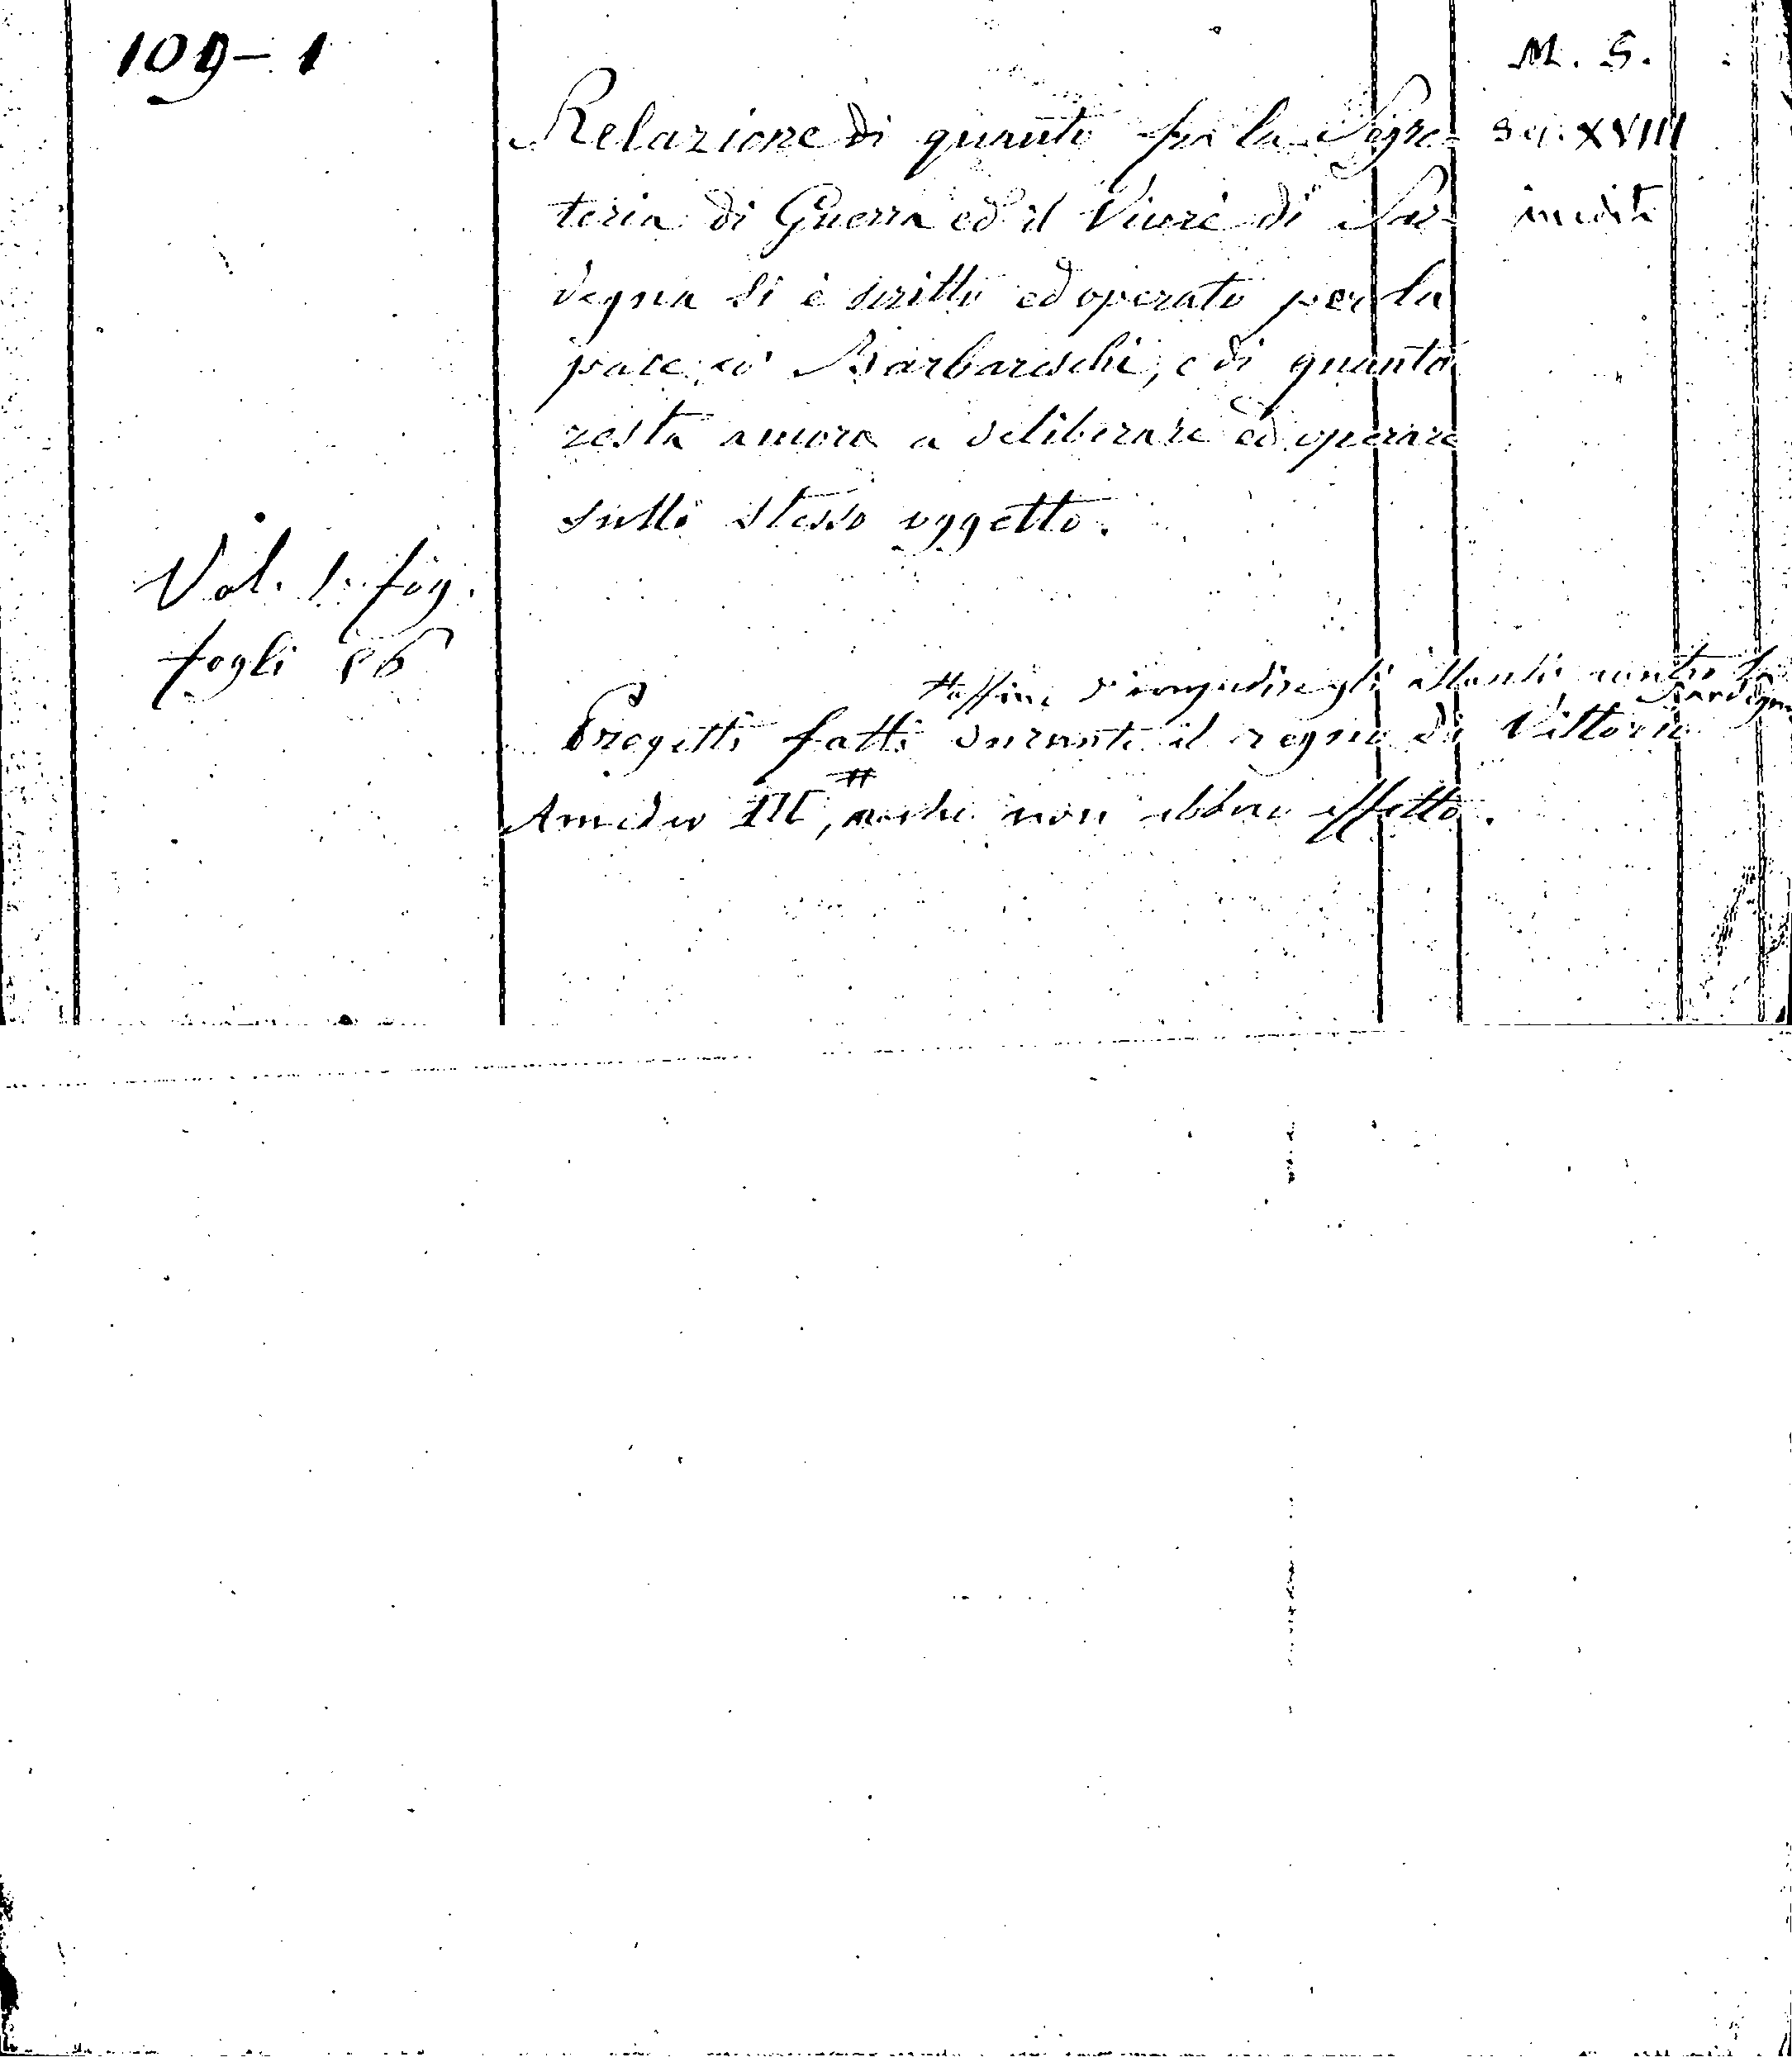 109-1
M. S.
Relazione di quanto fra la Segre-
sec. XVIII
teria di Guerra ed il Vicerè di Sar-
inedita
degna si è scritto ed operato per la
pace co' Barbareschi, e di quanto
resta ancora a deliberare ed operare
sullo stesso oggetto.
Vol. 1. fog.
fogli 86
# affine d'impedire gli attacchi contro la
Sardegna
Progetti fatti durante il regno di Vittorio
Amedeo III, # che non ebbero effetto.